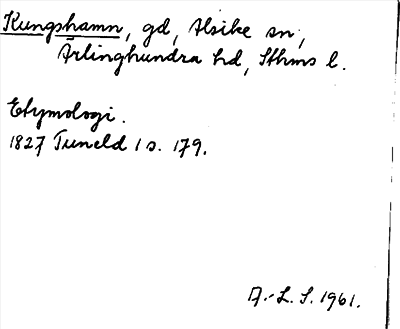 Kungshamn, gd, Alsike sn,
Ärlinghundra hd, Sthms l.
Etymologi.
1827 Tuneld 1 s. 179.
A.-L. S. 1961.